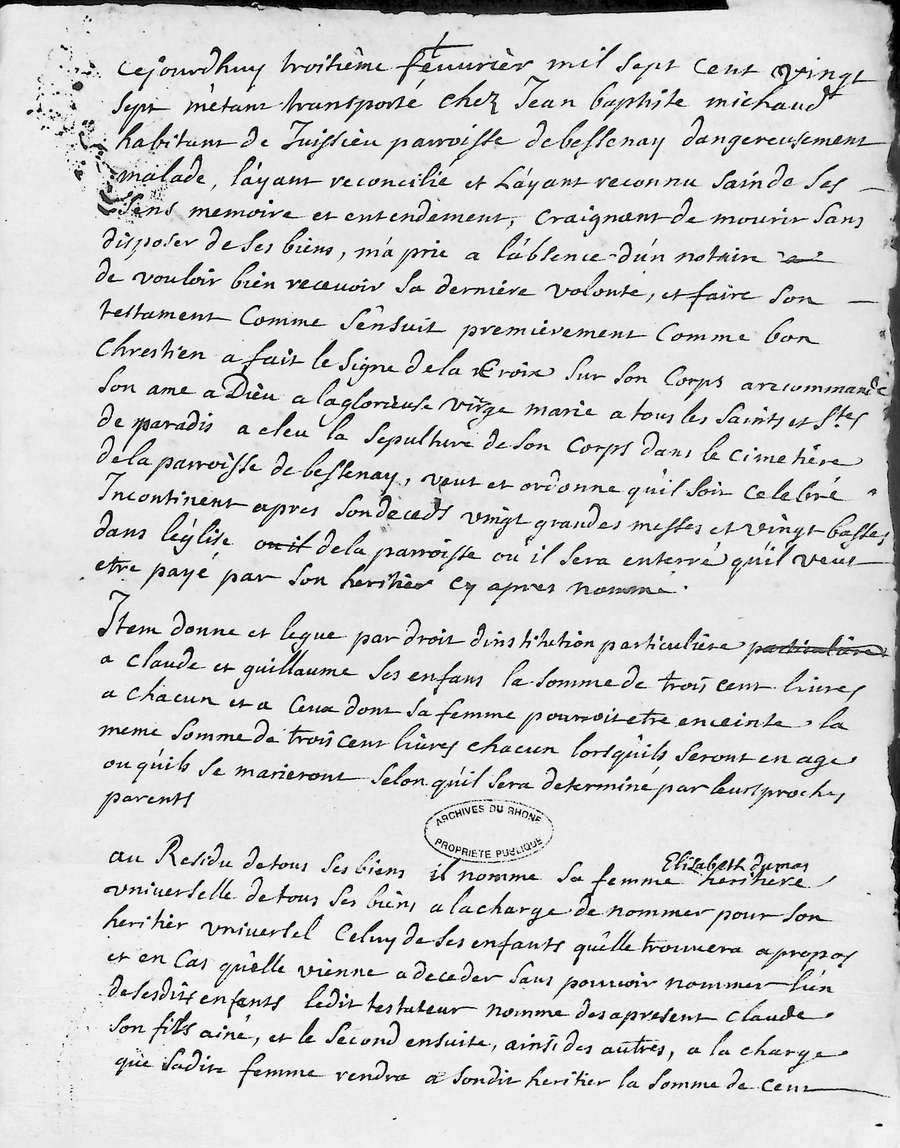 cejourdhuy troisième feuvrièr mil sept cent vingt
sept m'etant transporté chez Jean baptiste michaud
habitant de Juissieu parroisse debessenay dangereusement
malade, l'ayant reconcilié et L'ayant reconnu sainde ses
sens memoire et entendement, craignant de mourir sans
disposer de ses biens, m'a prie a l'absence d'un notaire
de vouloir bien recevoir sa derniere volonté, et faire son
testament Comme s'ensuit premièrement Comme bon
Chrestien a fait le signe de la Croix sur son Corps a recommandé
son ame a Dieu a laglorieuse virge marie a tous les saints et stes
de paradis a eleu la sepulture de son Corps dans le Cimetière
de la parroisse de bessenay, veut et ordonne qu'il soit celebré
Incontinent apres sondeceds vingt grandes messes et vingt basses
dans l'église ou il de la parroisse ou il sera enterré qu'il veut
etre payé par son heritier cy apres nommé.
Item donne et legue par droit d'institution particulière particulière
a claude et guillaume ses enfans la somme de trois cent livres
a chacun et a Ceux dont sa femme pourroit etre enceinte la
meme somme de trois cent livres chacun lorsqu'ils seront en age
ou qu'ils se marieront selon qu'il sera determiné par leurs proches
parents
ARCHIVES DU RHONE
PROPRIETE PUBLIQUE
Elisabeth dumas
au Residu de tous ses biens il nomme sa femme heritiere
vniverselle de tous ses biens a la charge de nommer pour son
heritier vniversel Celuy de ses enfants qu'elle trouvera a propos
et en Cas qu'elle vienne a deceder sans pouvoir nommer l'un
de sesdits enfants ledit testateur nomme des apresent claude
son fils ainé, et le second ensuite, ainsi des autres, a la charge
que sadite femme rendra a sondit heritier la somme de cent